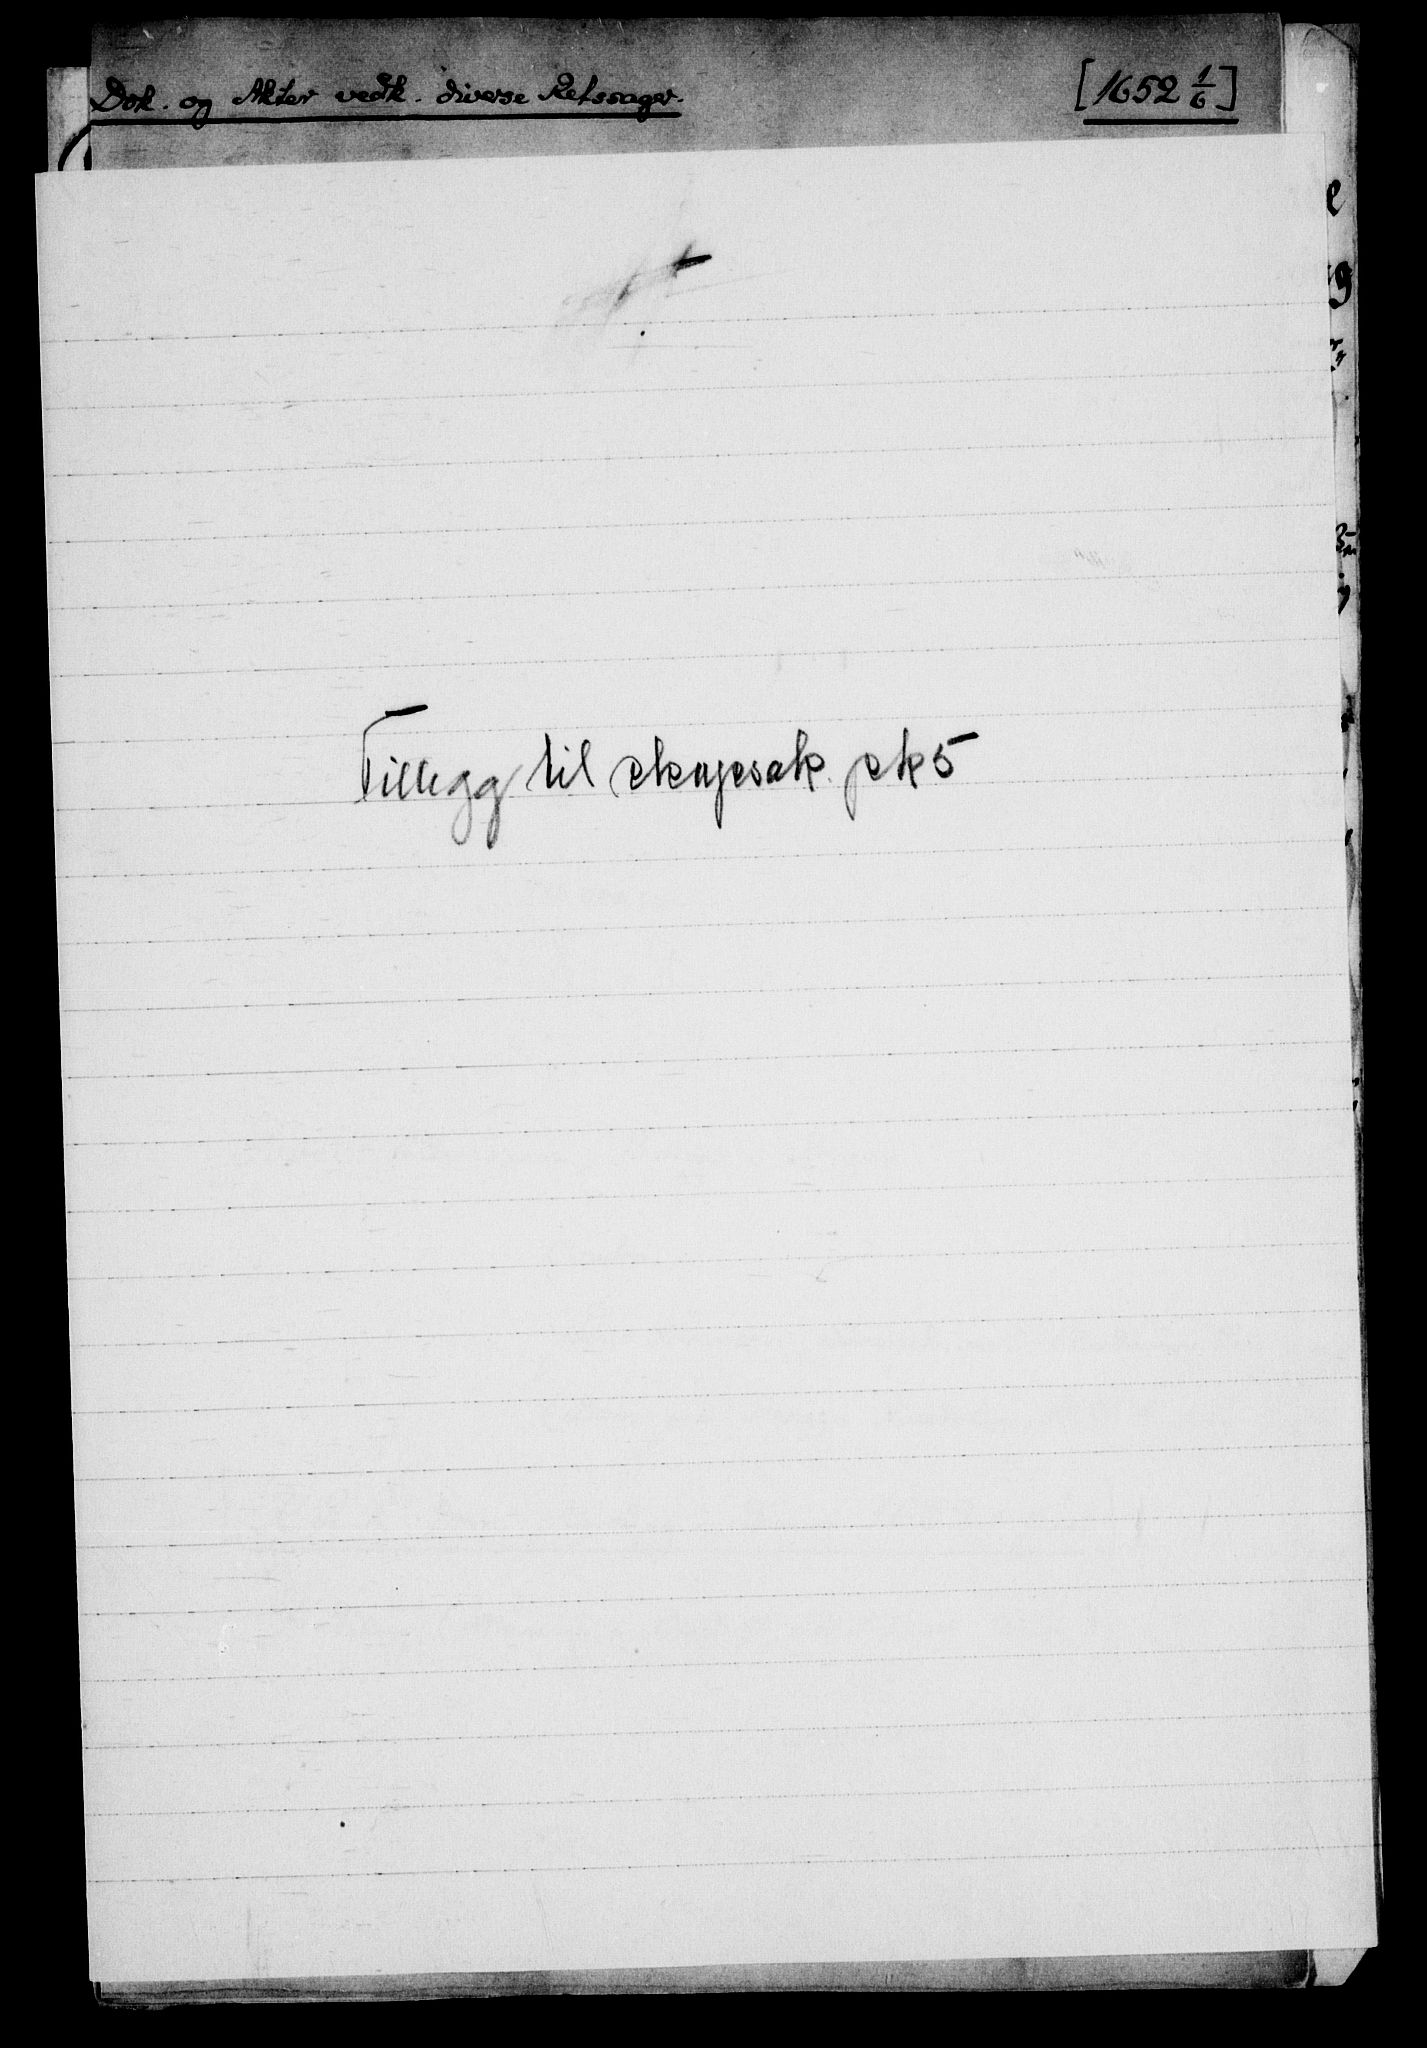 Dok. og Akter vedk. diverse Retssager.
[1652 1/6]
Tillegg til skapesak pk 5